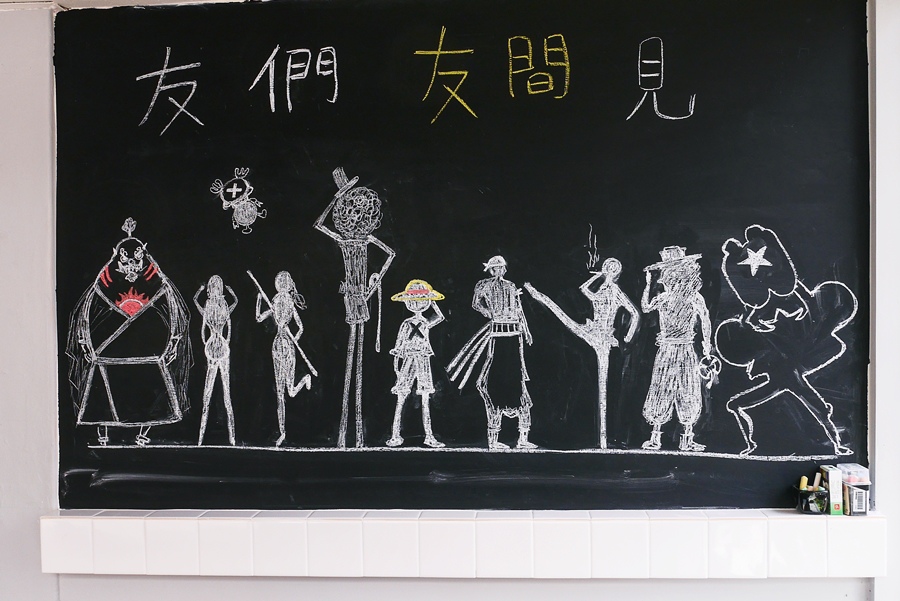 友們友間見